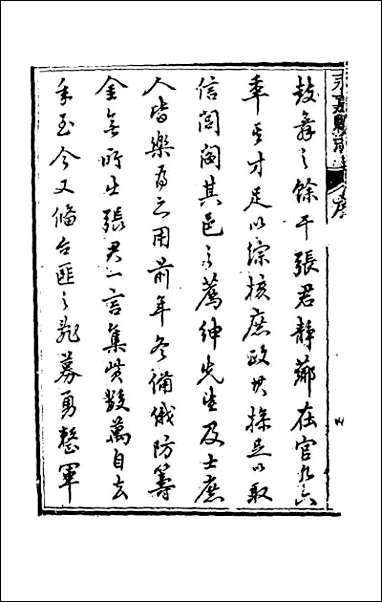 永嘉縣志
序
鼓舞之餘干張君靜薌在官九六
年其才足以綜核庶政其操足以取
信閭閻其邑之薦紳先生及士庶
人皆樂爲之用前年冬備俄防籌
金無所出張君一言集貲數萬自去
年至今又備台匪之亂募勇整軍